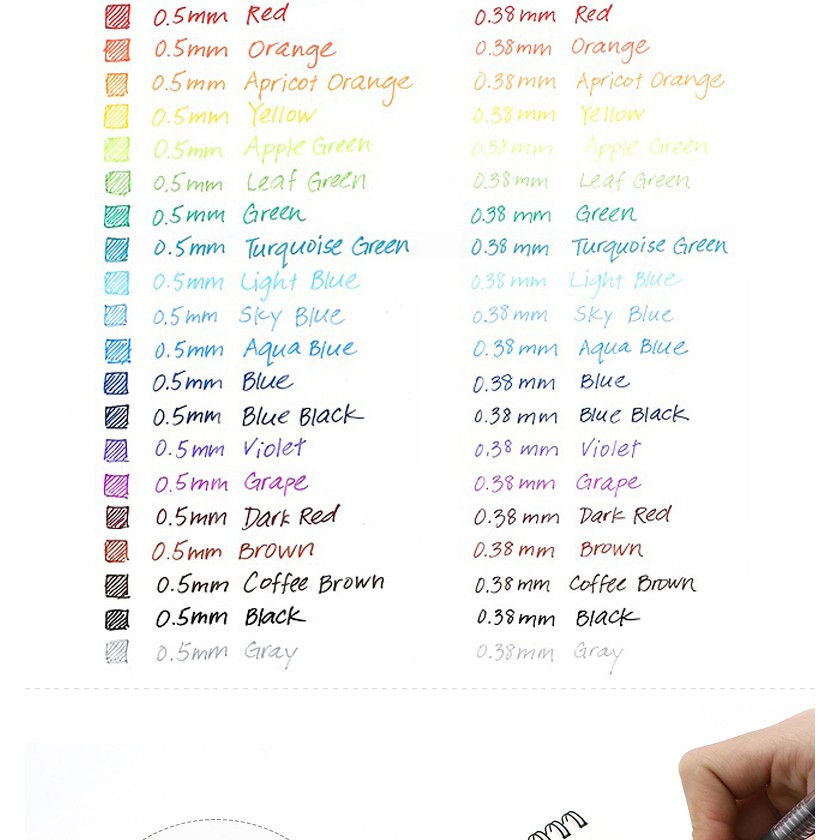 0.5mm Red 0.38mm Red
0.5mm Orange 0.38mm Orange
0.5mm Apricot Orange 0.38mm Apricot Orange
0.5mm Yellow 0.38mm Yellow
0.5mm Apple Green 0.38mm Apple Green
0.5mm Leaf Green 0.38mm Leaf Green
0.5mm Green 0.38mm Green
0.5mm Turquoise Green 0.38mm Turquoise Green
0.5mm Light Blue 0.38mm Light Blue
0.5mm Sky Blue 0.38mm Sky Blue
0.5mm Aqua Blue 0.38mm Aqua Blue
0.5mm Blue 0.38mm Blue
0.5mm Blue Black 0.38mm Blue Black
0.5mm Violet 0.38mm Violet
0.5mm Grape 0.38mm Grape
0.5mm Dark Red 0.38mm Dark Red
0.5mm Brown 0.38mm Brown
0.5mm Coffee Brown 0.38mm Coffee Brown
0.5mm Black 0.38mm Black
0.5mm Gray 0.38mm Gray